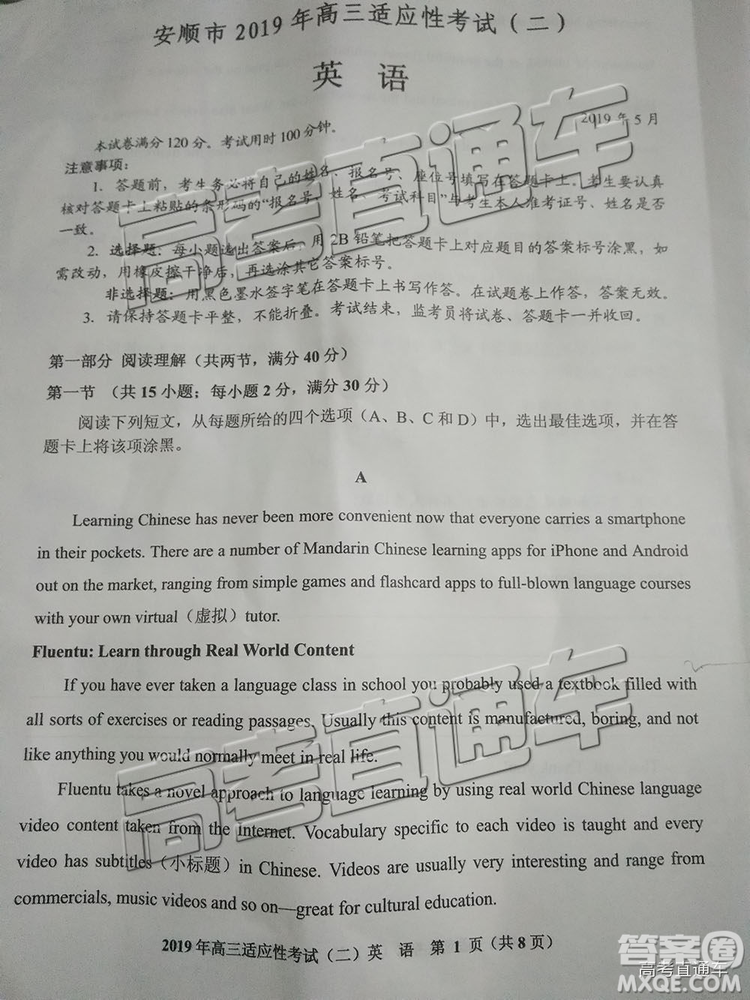 安顺市 2019 年高三适应性考试（二）
英 语
2019 年 5 月
本试卷满分 120 分。考试用时 100 分钟。
注意事项：
1. 答题前，考生务必将自己的姓名、报名号、座位号填写在答题卡上。考生要认真
核对答题卡上粘贴的条形码的“报名号、姓名、考试科目”与考生本人准考证号、姓名是否
一致。
2. 选择题：每小题选出答案后，用 2B 铅笔把答题卡上对应题目的答案标号涂黑，如
需改动，用橡皮擦干净后，再选涂其它答案标号。
非选择题：用黑色墨水签字笔在答题卡上书写作答。在试题卷上作答，答案无效。
3. 请保持答题卡平整，不能折叠。考试结束，监考员将试卷、答题卡一并收回。
第一部分 阅读理解（共两节，满分 40 分）
第一节 （共 15 小题；每小题 2 分，满分 30 分）
阅读下列短文，从每题所给的四个选项（A、B、C 和 D）中，选出最佳选项，并在答
题卡上将该项涂黑。
A
Learning Chinese has never been more convenient now that everyone carries a smartphone
in their pockets. There are a number of Mandarin Chinese learning apps for iPhone and Android
out on the market, ranging from simple games and flashcard apps to full-blown language courses
with your own virtual（虚拟）tutor.
Fluentu: Learn through Real World Content
If you have ever taken a language class in school you probably used a textbook filled with
all sorts of exercises or reading passages. Usually this content is manufactured, boring, and not
like anything you would normally meet in real life.
Fluentu takes a novel approach to language learning by using real world Chinese language
video content taken from the Internet. Vocabulary specific to each video is taught and every
video has subtitles（小标题）in Chinese. Videos are usually very interesting and range from
commercials, music videos and so on—great for cultural education.
2019 年高三适应性考试（二）英 语 第 1 页（共 8 页）
高考直通车
高考直通车
答案圈
高考直通车
MXQE.COM